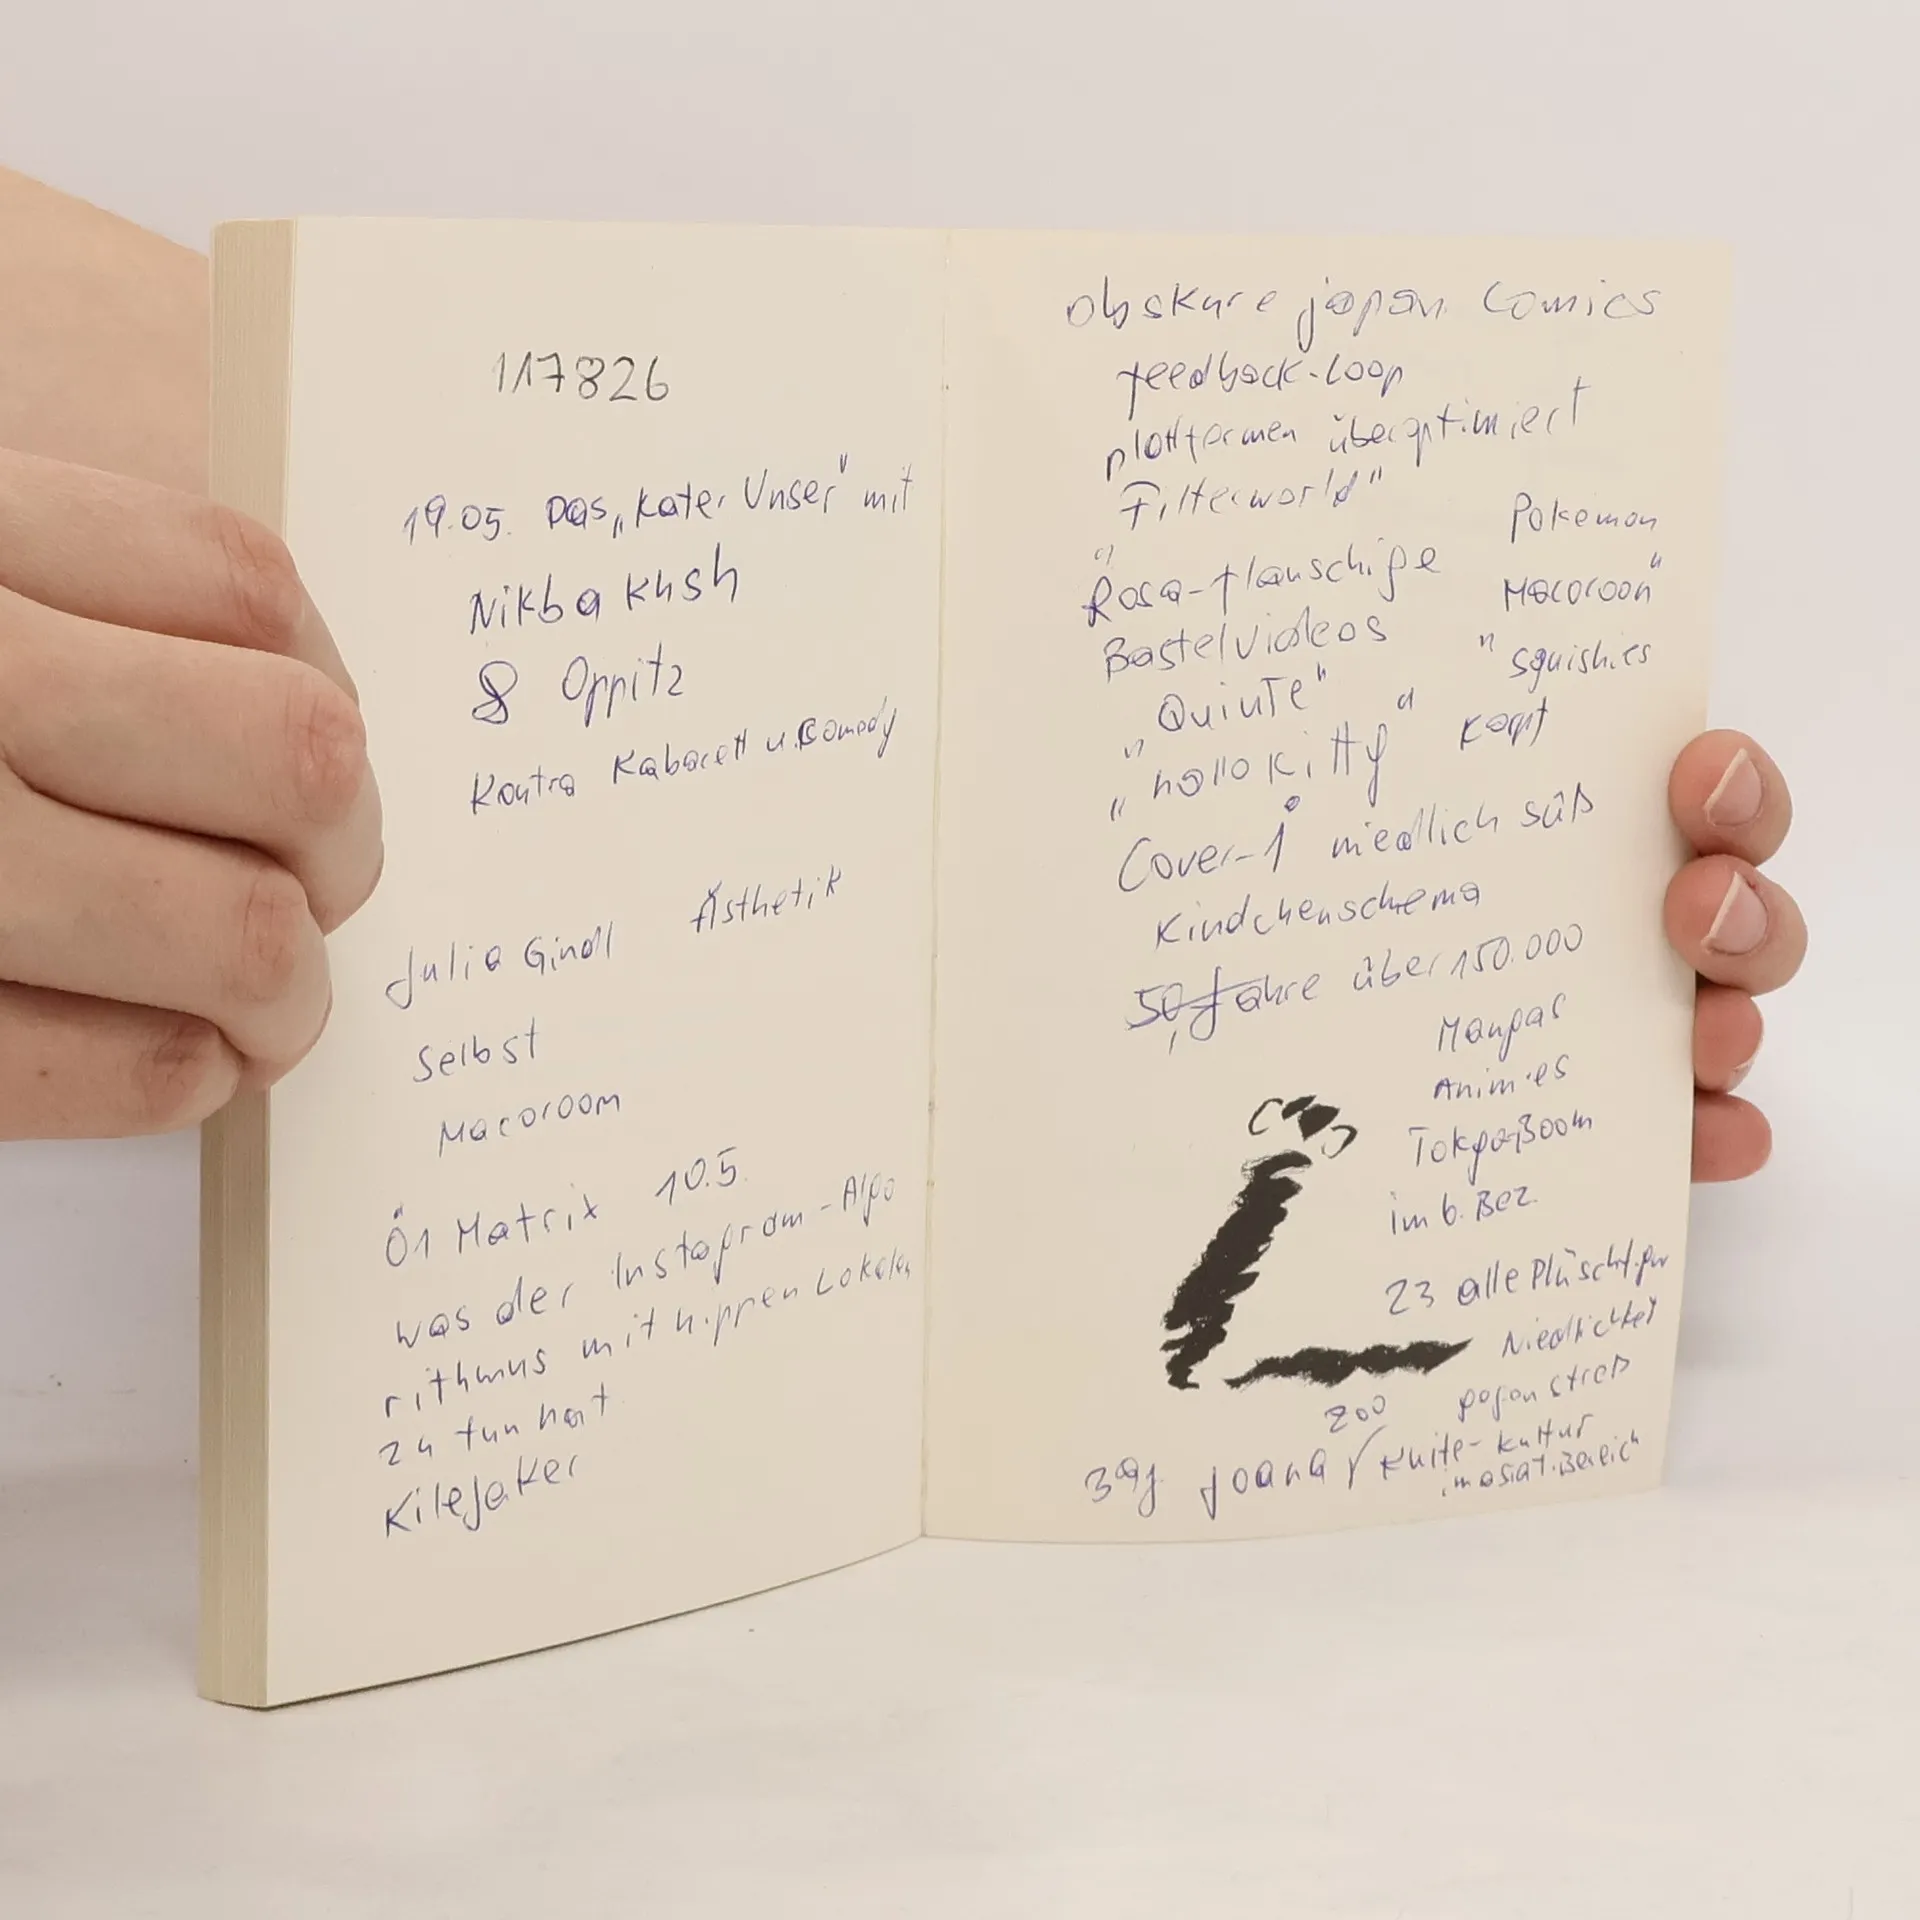 117826
19.05. Das „Kater Unser" mit
Nikbakhsh
& Oppitz
Kontra Kabarett u. Comedy
Julia Gindl Ästhetik
Selbst
Macoroom
Ö1 Matrix 10.5.
was der Instagram-Algo
rithmus mit hippen Lokalen
zu tun hat
obskure japan. Comics
feedback-Loop
plattformen überoptimiert
"Filterworld"
Rosa-flauschige
Bastelvideos
Pokemon
Macoroon"
" squishies
„Quinte"
„hallo Kitty"
Cover-1 niedlich süß
Kindchenschema
50 Jahre über 150.000
Mangas
Animies
Tokyo-Boom
im 6. Bez.
23 alle
Niedlichkei
gegen streß
zoo
3 Joana
kultur